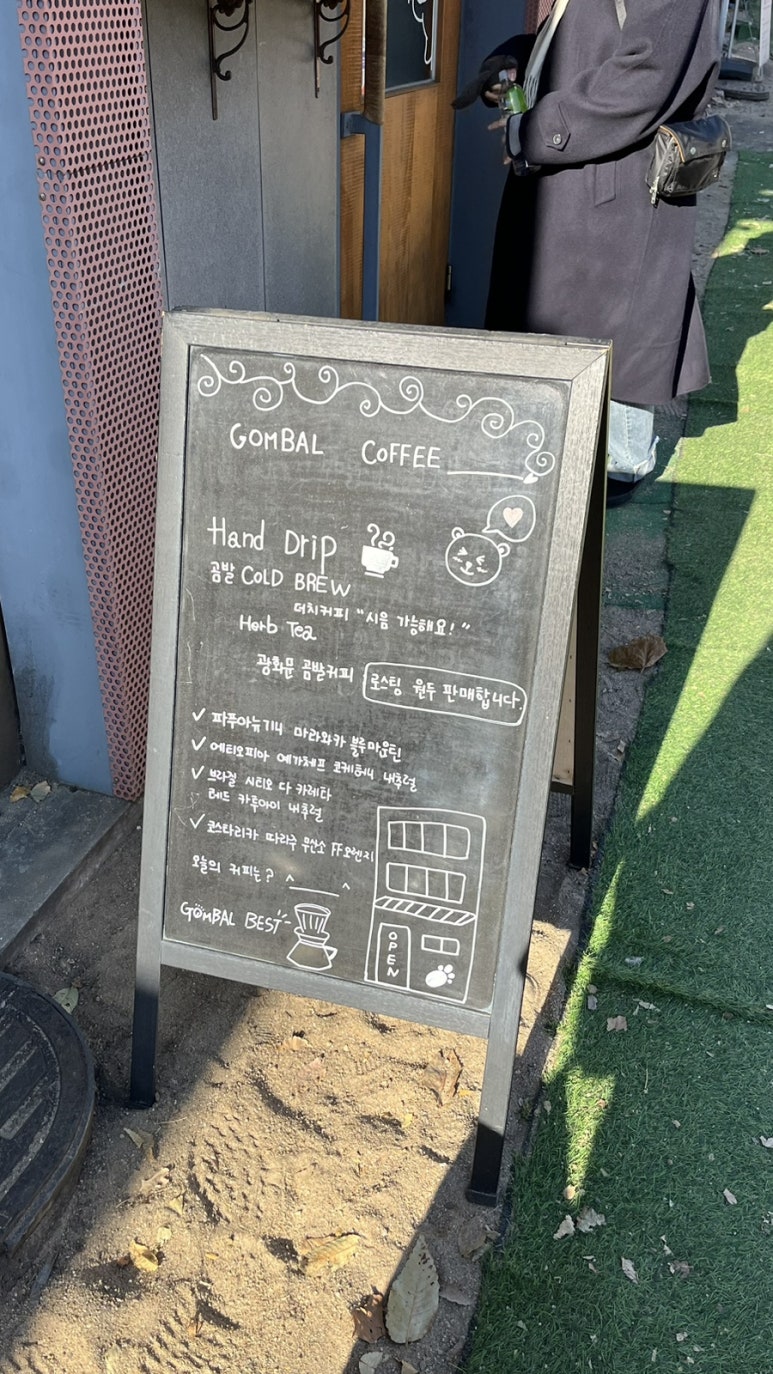 GOMBAL COFFEE
Hand Drip
곰발 COLD BREW
더치커피 "시음 가능해요!"
Herb Tea
광화문 곰발커피 로스팅 원두 판매합니다.
✓ 파푸아뉴기니 마라와카 블루마운틴
✓ 에티오피아 예가체프 코케허니 내추럴
✓ 브라질 시티오 다 카레타
레드 카투아이 내추럴
✓ 코스타리카 따라주 무산소 FF오렌지
오늘의 커피는? ^ ____ ^
GOMBAL BEST
OPEN